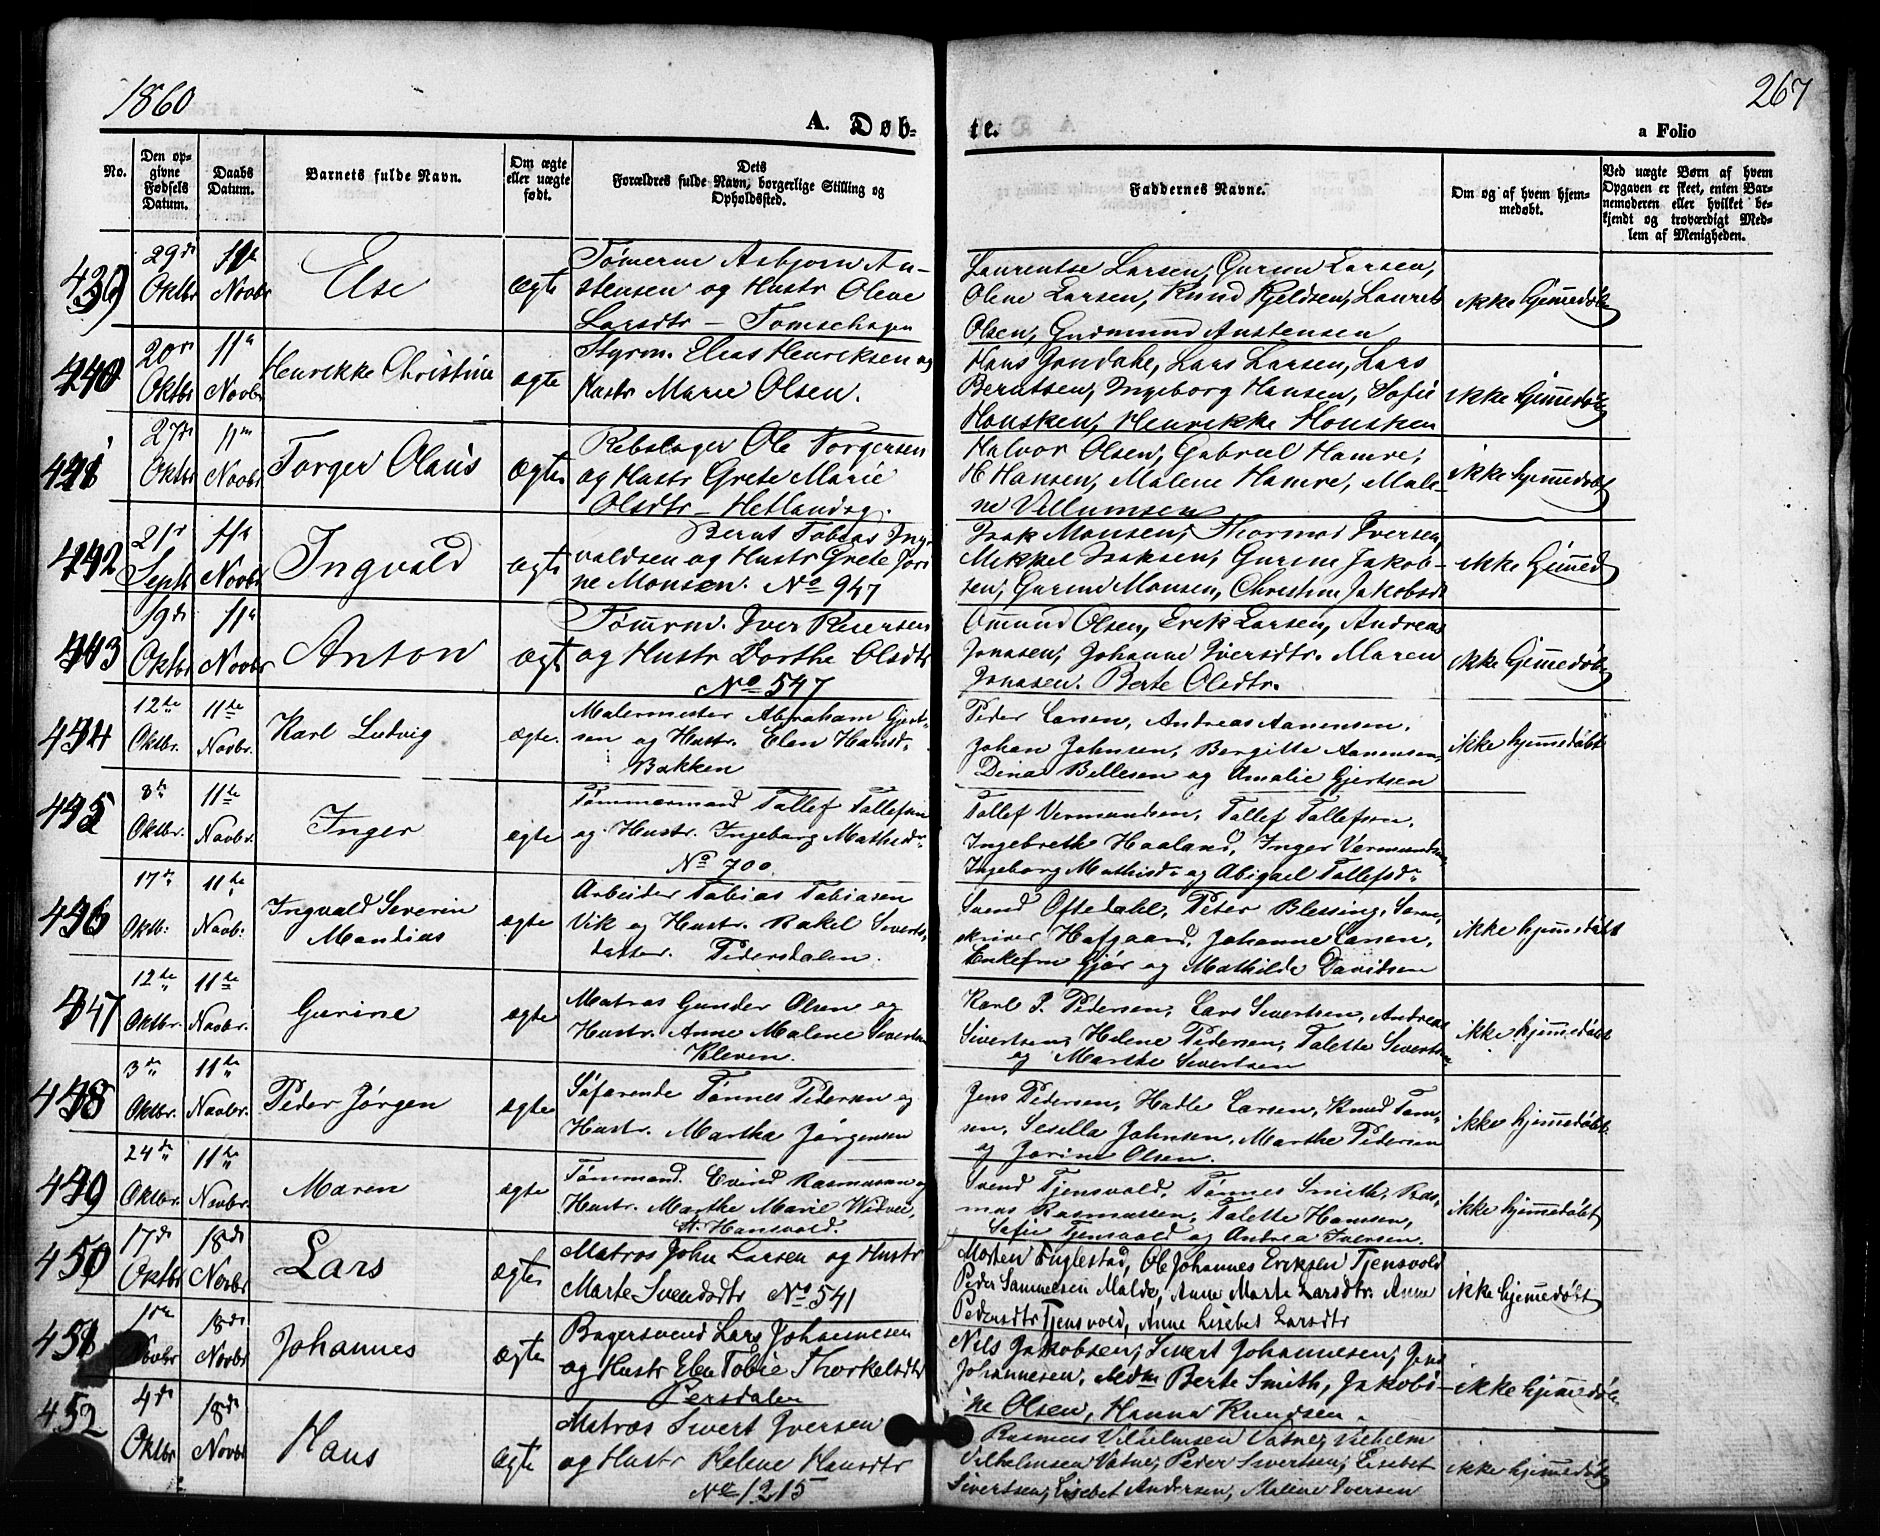 1860
267
A. Døb-
te.
a Folio
No.
Den op-
givne
Fødsels
Datum.
Daabs
Datum.
Barnets fulde Navn.
Om ægte
eller uægte
født.
Dets
Forældres fulde Navn, borgerlige Stilling og
Opholdssted.
Faddernes Navne.
Om og af hvem hjem-
medøbt.
Ved uægte Børn af hvem
Opgaven er skeet, enten Bar-
nemoderen eller hvilket be-
kjendt og troværdigt Med-
lem af Menigheden.
439
29de Oktbr
11te Novbr
Else
ægte
Tømerm Asbjørn Au-
stensen og Hustr Olene
Larsdtr – Tomsehagen
Laurentse Larsen, Gurine Larsen,
Olene Larsen, Knud Kjeldsen, Laurets
Olsen, Gudmund Austensen
ikke hjemedøbt
440
20de Oktbr
11te Novbr
Henrikke Christine
ægte
Styrm. Elias Henriksen og
Hustr Marie Olsen.
Hans Gandahe, Lars Larsen, Lars
Berntsen, Ingeborg Hansen, Sofie
Housken, Henrikke Housken
ikke hjemedøbt
441
27de Oktbr
11te Novbr
Torger Olaus
ægte
Rebslager Ole Torgersen
og Hustr Grete Marie
Olsdtr – Hetlandsg.
Halvor Olsen, Gabriel Hamre,
H Hansen, Malene Hamre, Male-
ne Villumsen
ikke hjemedøbt
442
21de Septb
11te Novbr
Ingvald
ægte
Bernt Tobias Ing-
valdsen og Hustr Grete Jori-
ne Monsen. No 947
Isak Monsen, Thormod Iversen,
Mikkel Isaksen, Gurine Jakob-
sen, Gurine Monsen, Christine Jakobsdt
ikke hjemed
443
19de Oktbr
11te Novbr
Anton
ægte
Tømrm. Iver Reiersen
og Hustr Dorthe Olsdtr
No 547
Omund Olsen, Erik Larsen, Andreas
Jonasen, Johanne Iversdtr. Maren
Jonasen. Berte Olsdtr.
ikke hjemedøbt
444
12te Oktbr.
11te Novbr.
Karl Ludvig
ægte.
Malermester Abraham Gjert-
sen og Hustr. Elen Hansd.
Bakken
Peder Larsen, Andreas Aanensen.
Johan Johnsen, Bergitte Aanensen,
Dina Bellesen og Amalie Gjertsen
ikke hjemmedøbt
445
8de Oktbr.
11te Novbr.
Inger
ægte
Tømmermand Tollef Tollefsen
og Hustr. Ingeborg Mathisd.
No 700
Tollef Vermundsen, Tollef Tollefsen.
Ingebreth Haaland, Inger Vermundsen,
Ingeborg Mathisd. og Abigael Tollefsd.
446
17de Oktb:
11te Novb:
Ingvald Severin
Mandius
ægte
Arbeider Tobias Tobiasen
Vik og Hustr. Rakel Siverts-
datter. Pedersdalen.
Svend Oftedahl, Peter Blessing, Soren-
skriver Hofgaard, Johanne Larsen,
Enkefru Gjør og Mathilde Davidsen
ikke hjemmedøbt
447
12te Oktbr.
11te Novbr.
Gurine
ægte
Matros Gunder Olsen og
Hustr. Anne Malene Sivertsen
Kleven.
Karl P. Pedersen, Lars Sivertsen, Andreas
Sivertsen, Helene Pedersen, Talette Sivertsen
og Marthe Sivertsen
ikke hjemmedøbt
448
3de Oktbr.
11te Novbr.
Peder Jørgen
ægte
Søfarende Tønnes Pedersen og
Hustr. Martha Jørgensen
Jens Pedersen, Hadle Larsen, Knud Tom-
sen, Sesilla Johnsen, Marthe Pedersen
og Jorine Olsen.
ikke hjemmedøbt.
449
24de Oktbr.
11te Novbr.
Maren
ægte
Tømmend. Eivind Rasmussen og
Hustr. Marthe Marie
Svend Tjensvold, Tønnes Smith, Ras-
mus Rasmussen, Talette Hansen,
Sofie Tjensvold og Andrea Iversen.
ikke hjemmedøbt
450
17de Oktbr
18de Novbr
Lars
ægte
Matros John Larsen og Hustr
Marte Svendsdtr No 541
Morten Fuglestad, Ole Johannes Eriksen Tjensvold
Peder Samuelsen Malde, Anne Marte Larsdtr. Anne
Pedersdtr Tjensvold, Anne Lisebet Larsdtr
ikke hjemedøbt
451
1ste Novbr
18de Novbr
Johannes
ægte
Bagersvend Lars Johannesen
og Hustr Elen Tobie Thorkelsdtr
Persdalen
Nils Jakobsen, Sivert Johannesen, Jens
Johannesen, Mdm Berte Smith, Jakobi-
ne Olsen, Hanna Knudsen.
ikke hjemedøbt
452
4de Oktbr
18de Novbr
Hans
ægte
Matros Sivert Iversen
og Hustr Helene Hansdtr
No 1215
Rasmus Vilhelmsen Vatne, Vilhelm
Vilhelmsen Vatne, Peder Sivertsen, Lisebet
Sivertsen, Lisebet Andersen, Malene Iversen
ikke hjemedøbt